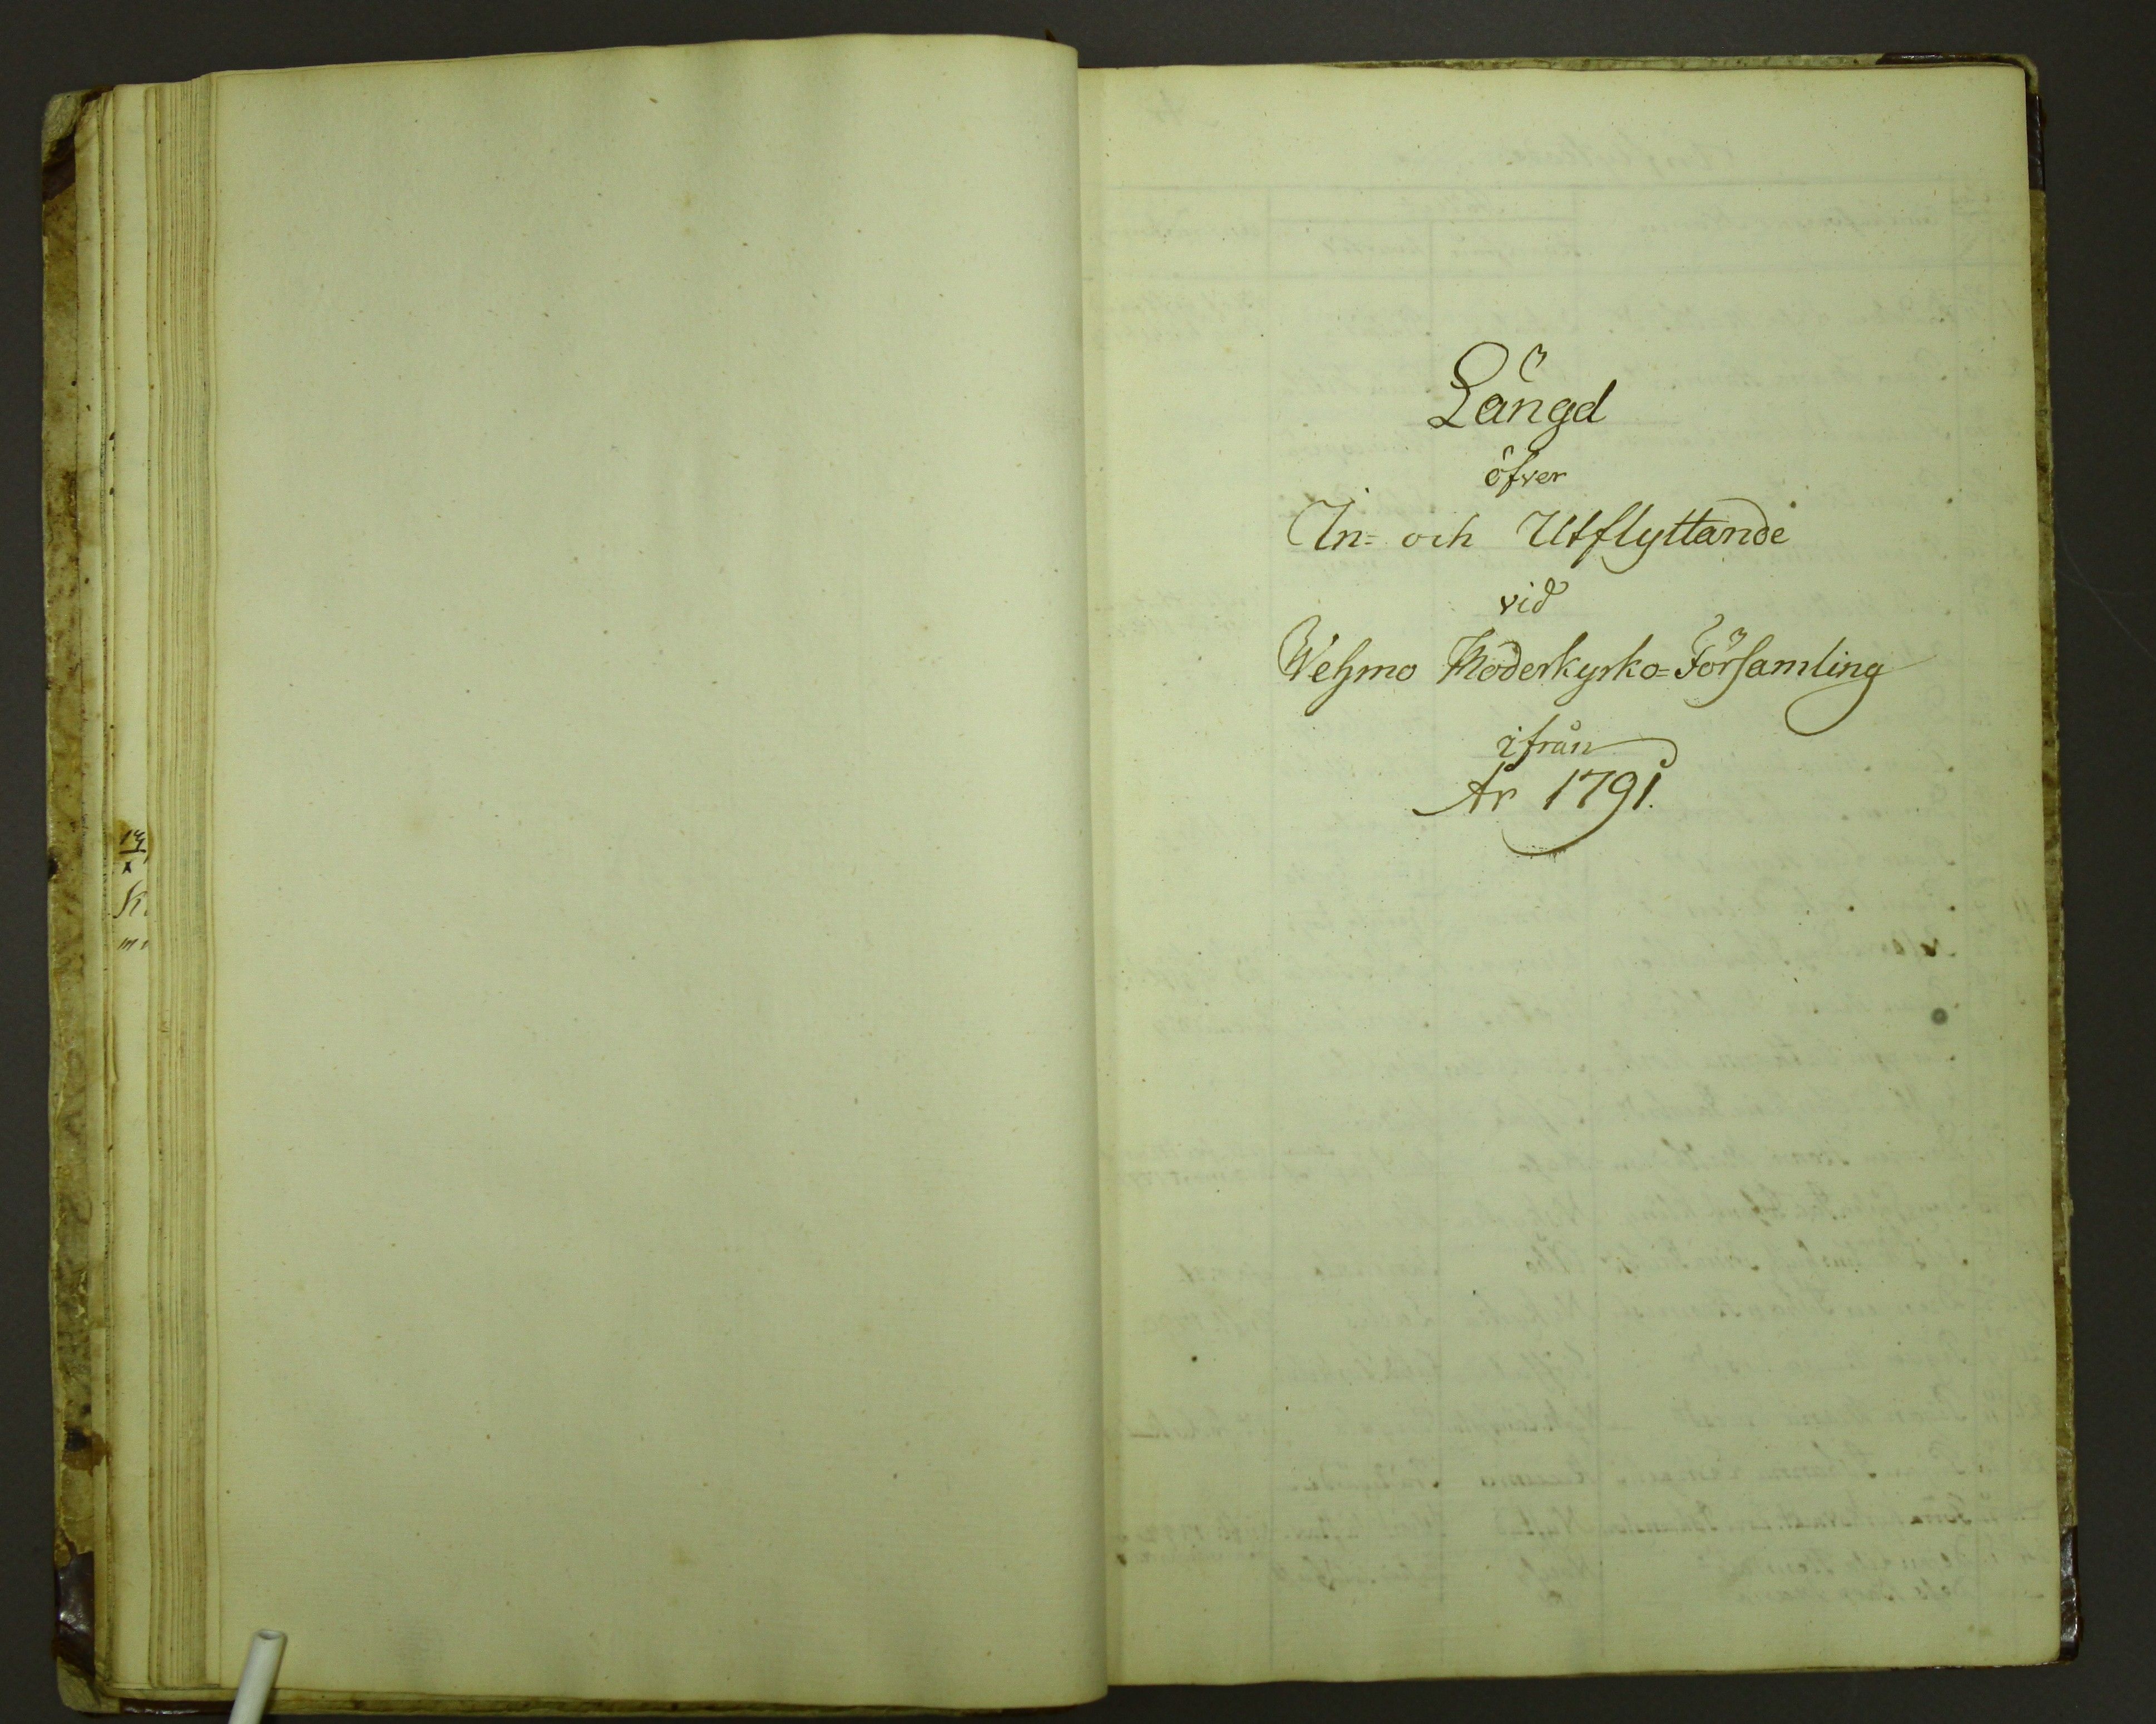 Längd
öfver
In= och Utflyttande
vid
Wehmo Moderkyrko=Församling
ifrån
År 1791.